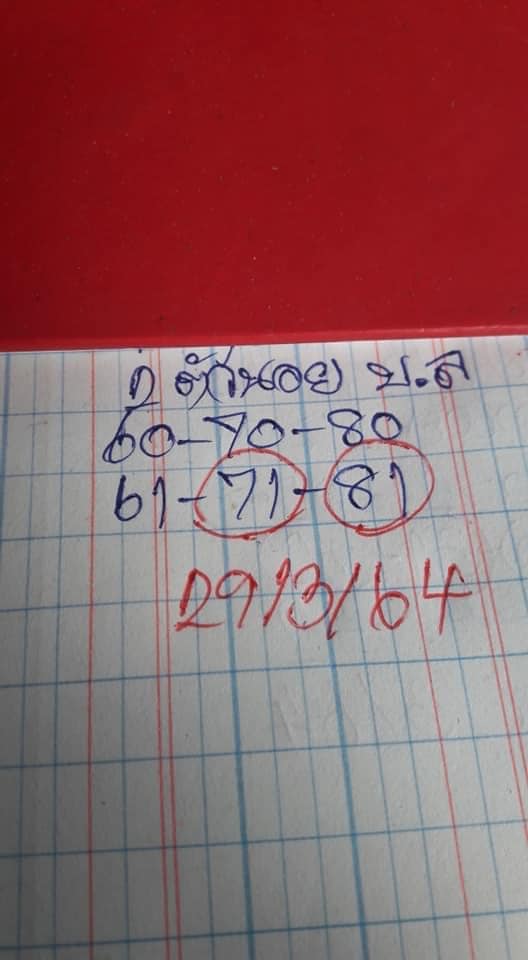 2 ตัวนอย บ.ล
60-70-80
61-71-81
29/3/64